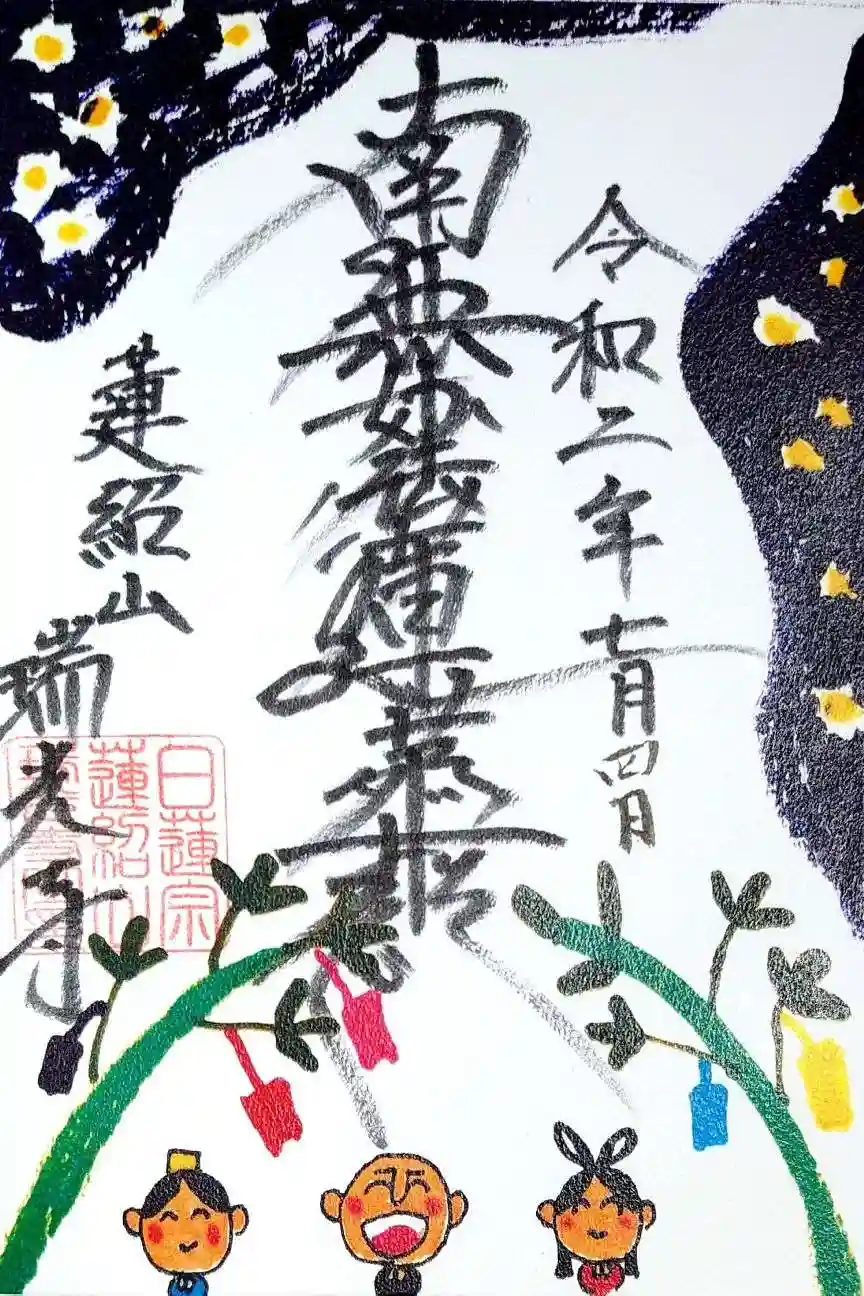 令和二年七月四日
南無妙法蓮華経
蓮紹山
瑞光寺
日蓮宗
蓮紹山
瑞光寺